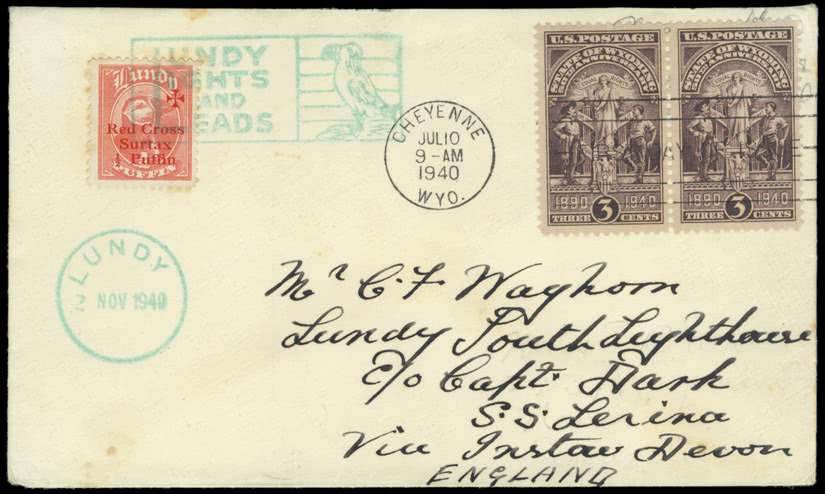 LUNDY
LIGHTS
AND
LEADS
Lundy
Red Cross
Surtax
½ Puffin
PUFFIN
CHEYENNE
JUL 10
9-AM
1940
WYO.
U.S. POSTAGE
STATE OF WYOMING
50TH ANNIVERSARY
EQUAL RIGHTS
1890 1940
THREE 3 CENTS
U.S. POSTAGE
STATE OF WYOMING
50TH ANNIVERSARY
EQUAL RIGHTS
1890 1940
THREE 3 CENTS
LUNDY
2 NOV 1940
Mr C. F. Waghorn
Lundy South Lighthouse
c/o Capt. Dark
S.S. Lerina
Via Instow Devon
ENGLAND